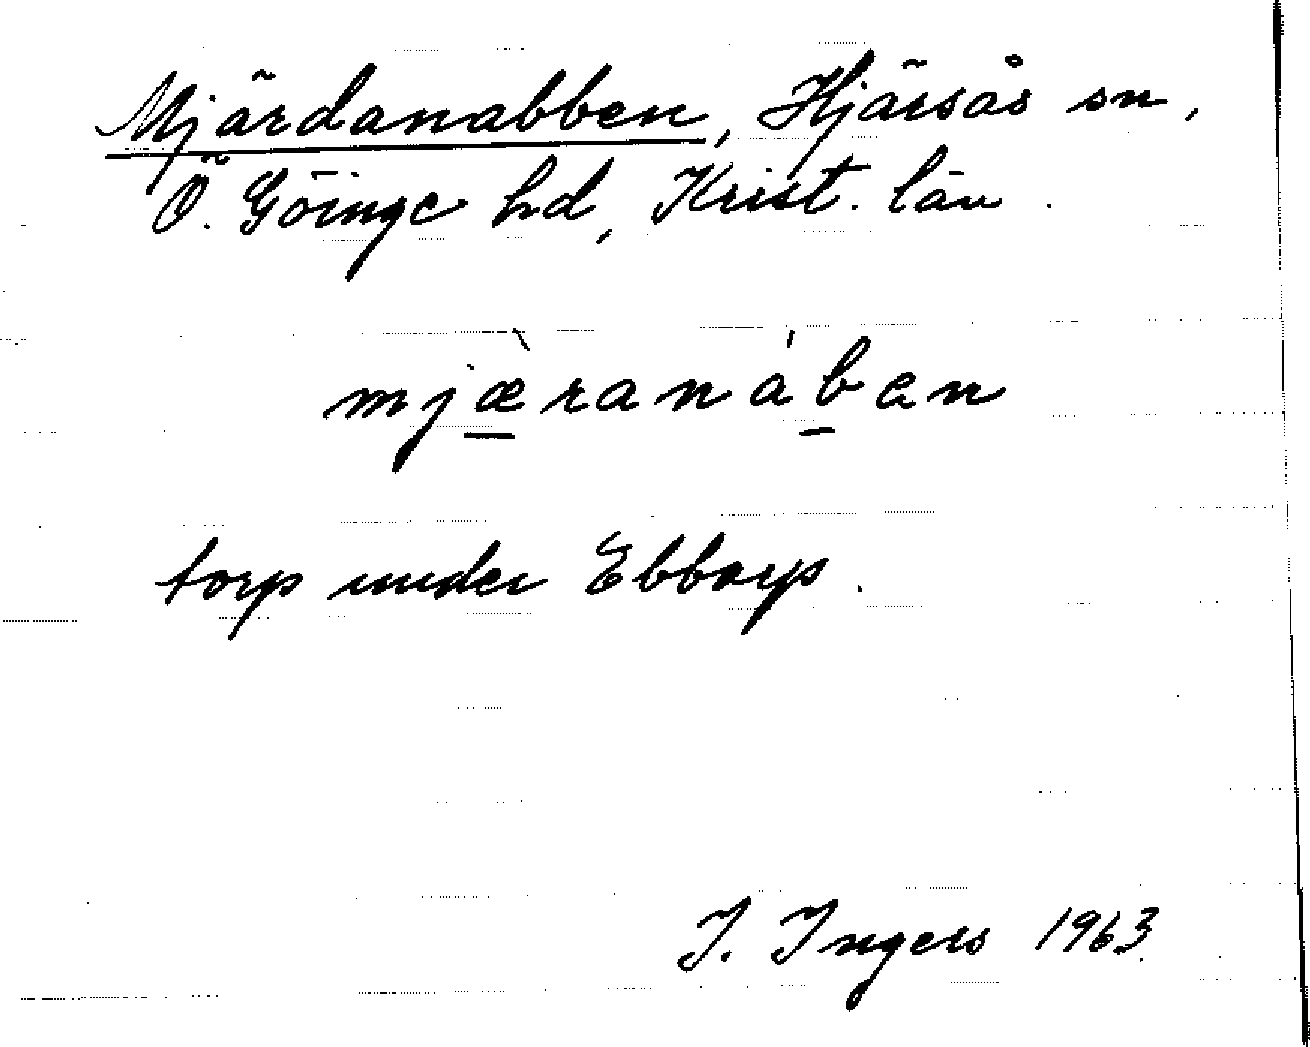 Mjärdanabben, Hjärsås sn,
Ö. Göinge hd, Krist. län.
mjæ̀ranáben
torp under Ebbarp.
I. Ingers 1963.